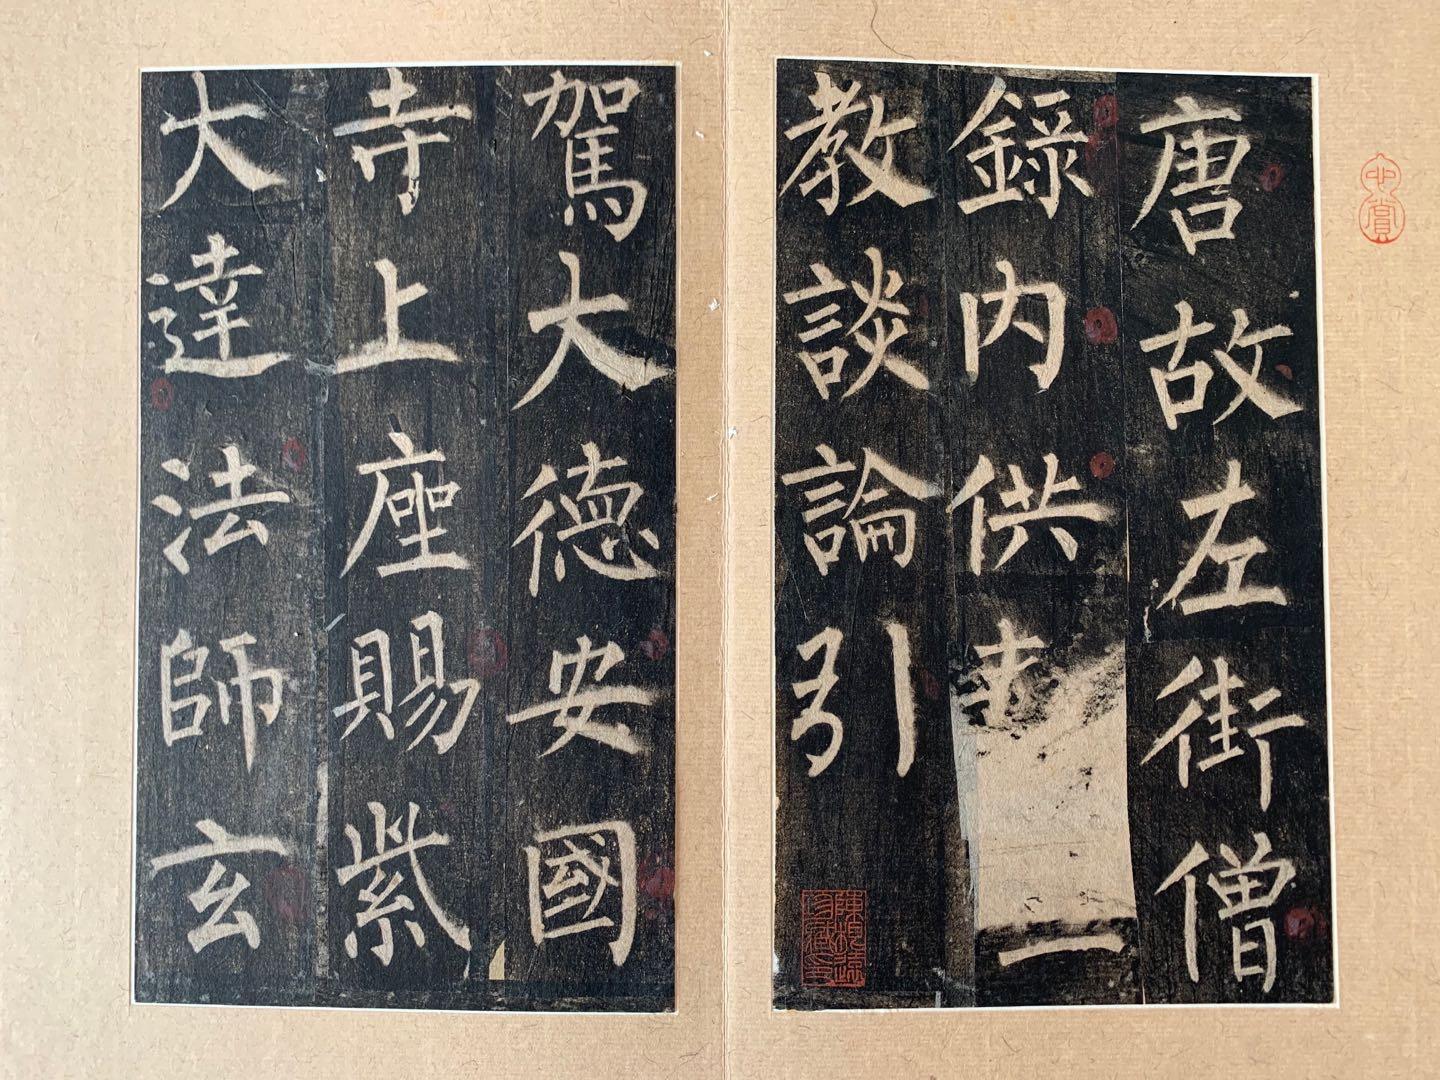 唐故左街僧
錄內供一
教談論引
駕大德安國
寺上座賜紫
大達法師玄